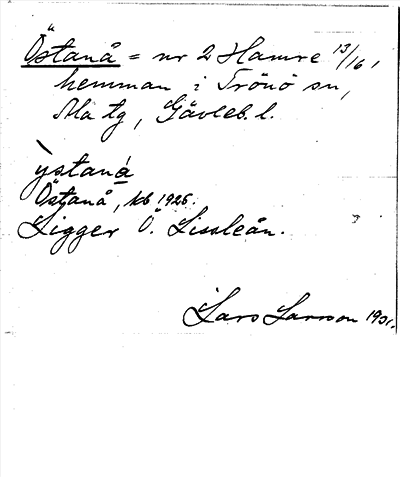 Östanå = nr 2 Hamre 13/16,
hemman i Trönö sn,
Ala tg, Gävleb. l.
ỳstaná
Östanå, kb 1926.
Ligger Ö. Lissleån.
Lars Larsson 1931.